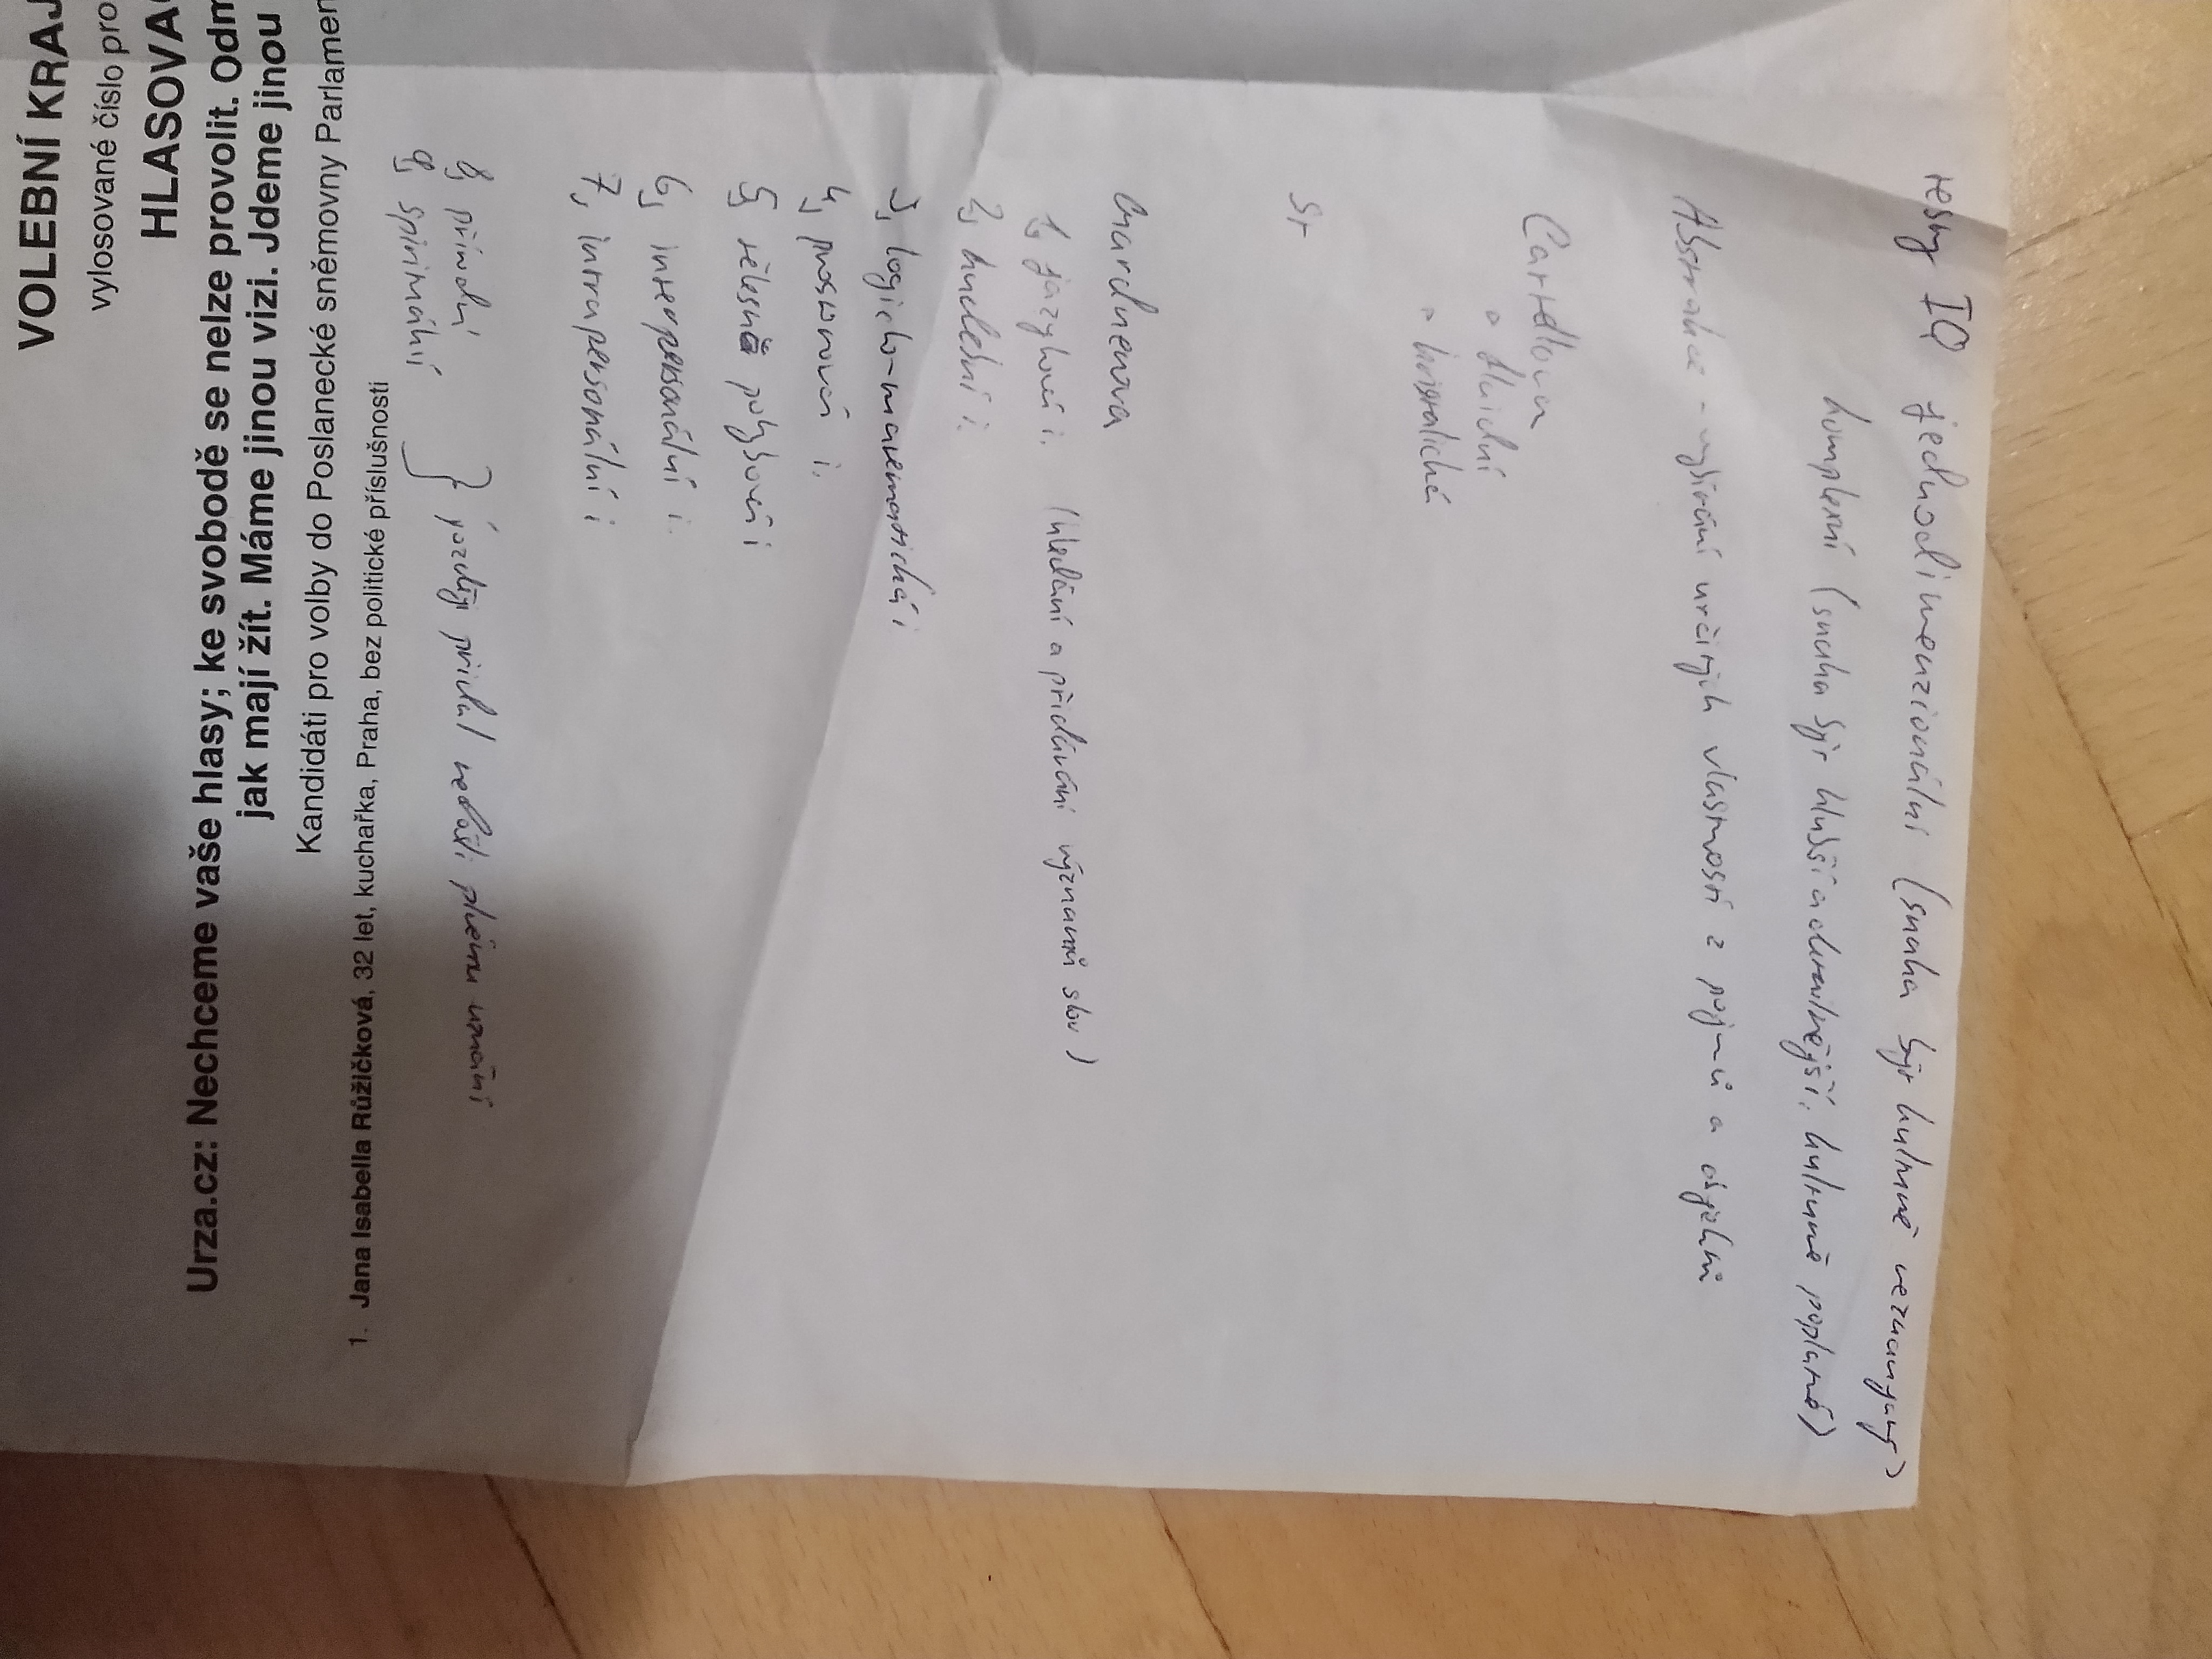 VOLEBNÍ KRAJ
vylosované číslo pro
HLASOVAC
Urza.cz: Nechceme vaše hlasy; ke svobodě se nelze provolit. Odm
jak mají žít. Máme jinou vizi. Jdeme jinou
Kandidáti pro volby do Poslanecké sněmovny Parlamen
1. Jana Isabella Růžičková, 32 let, kuchařka, Praha, bez politické příslušnosti
testy IQ jednodimenzionální (snaha být kulturně nezávislý)
komplexní (snaha být hlubší a odkrývající, kulturně poplatné)
Abstrakce - vybírání určitých vlastností z pojmů a objektů
Cattellova
° fluidní
° krystalická
St
Gardnerova
1, jazyková i. (hledání a přidávání významů slov)
2, hudební i.
3, logicko-matematická i
4, prostorová i.
5, tělesně pohybová i
6, interpersonální i
7, intrapersonální i
8, přírodní
9, spirituální } později přidal nedošli plného uznání